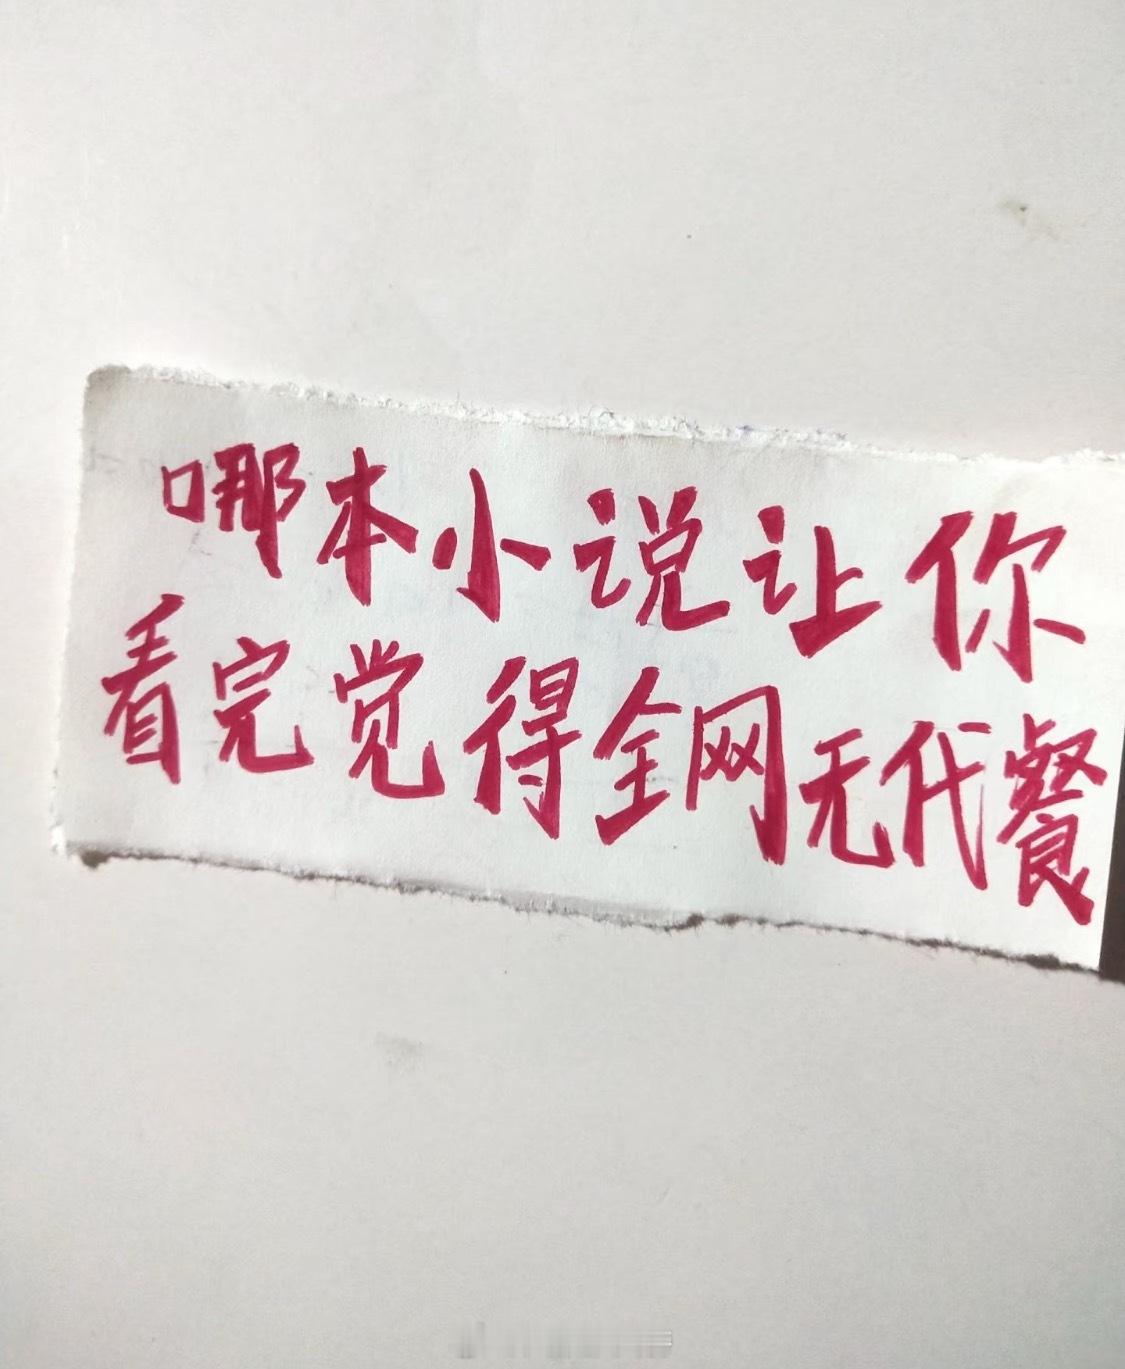 哪本小说让你
看完觉得全网无代餐